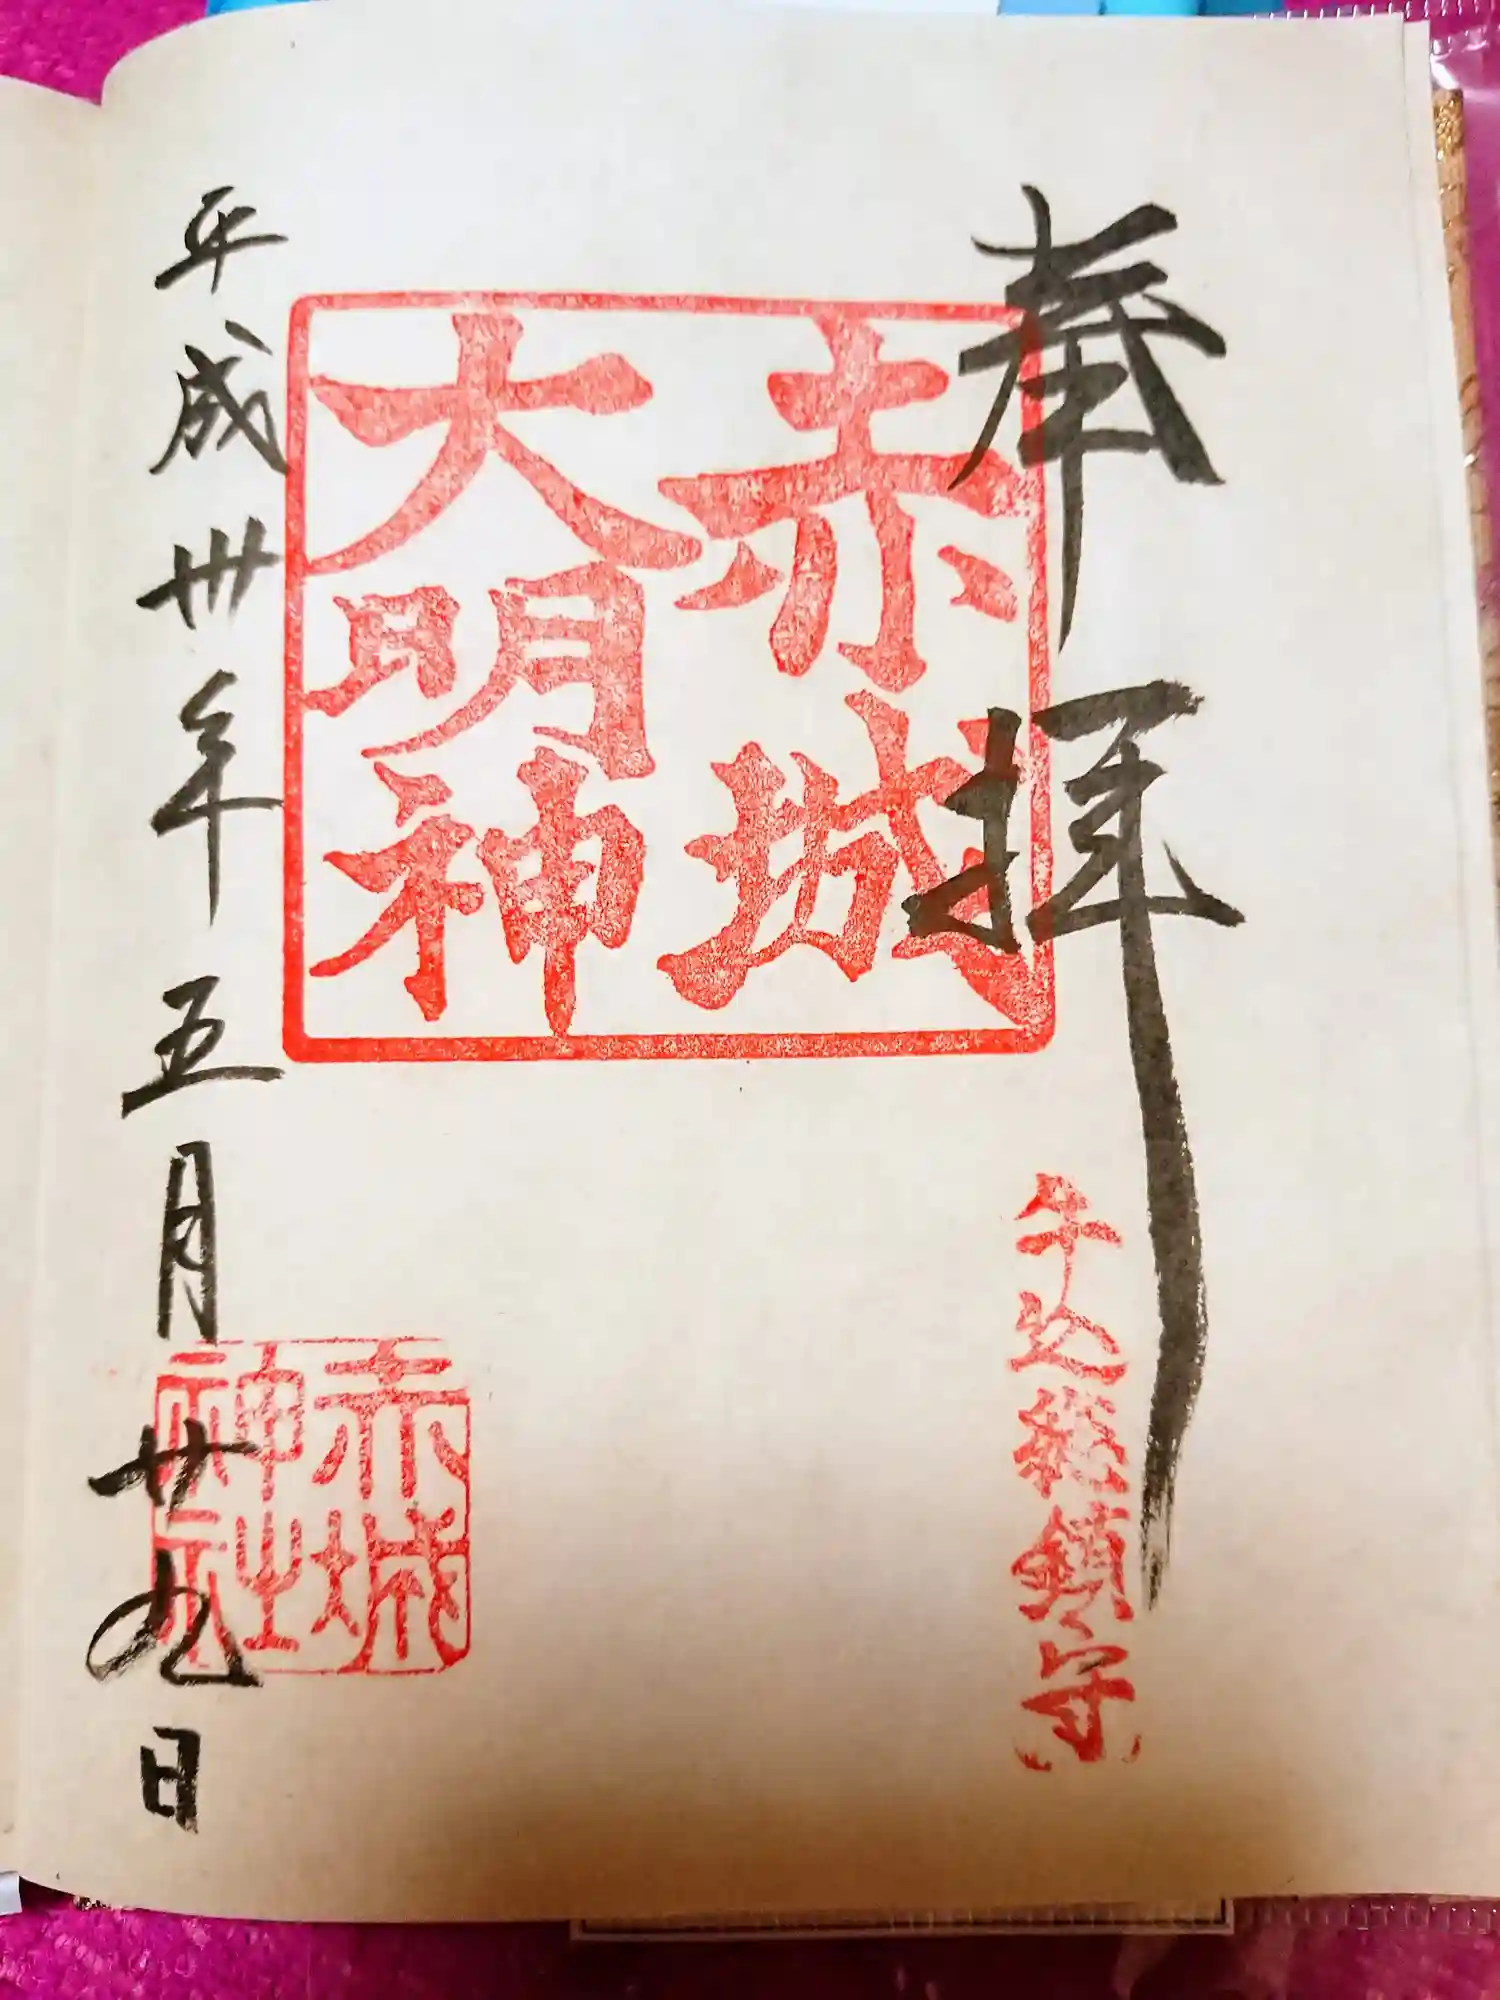 奉拝
牛込總鎮守
赤城
大明神
赤城
神社
平成卅年五月廿九日